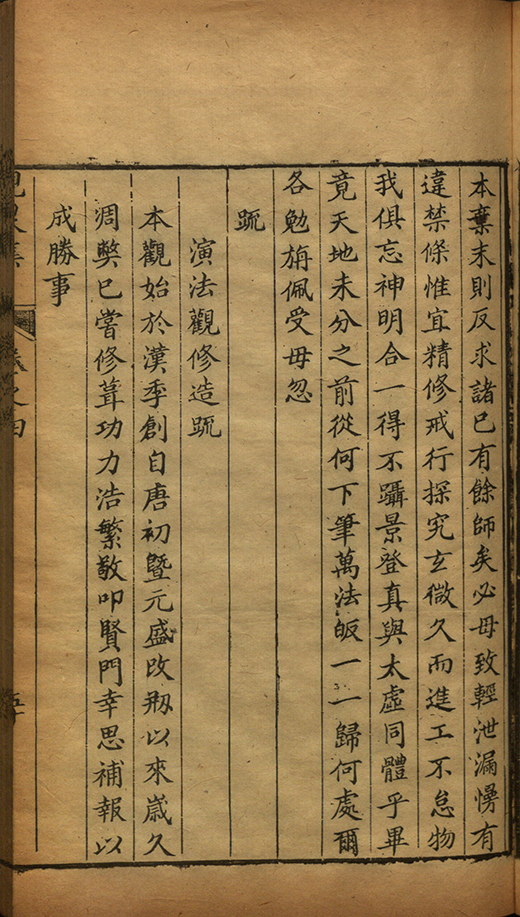 本棄末則反求諸己有餘師矣必毋致輕泄漏慢有
違禁條惟宜精修戒行探究玄微久而進工不怠物
我俱忘神明合一得不躡景登真與太虛同體乎畢
竟天地未分之前從何下筆萬法皈一一歸何處爾
各勉旃佩受毋忽
䟽
演法觀修造䟽
本觀始於漢季創自唐初暨元盛改剏以來嵗久
凋弊已嘗修葺功力浩繁敬叩賢門幸思補報以
成勝事